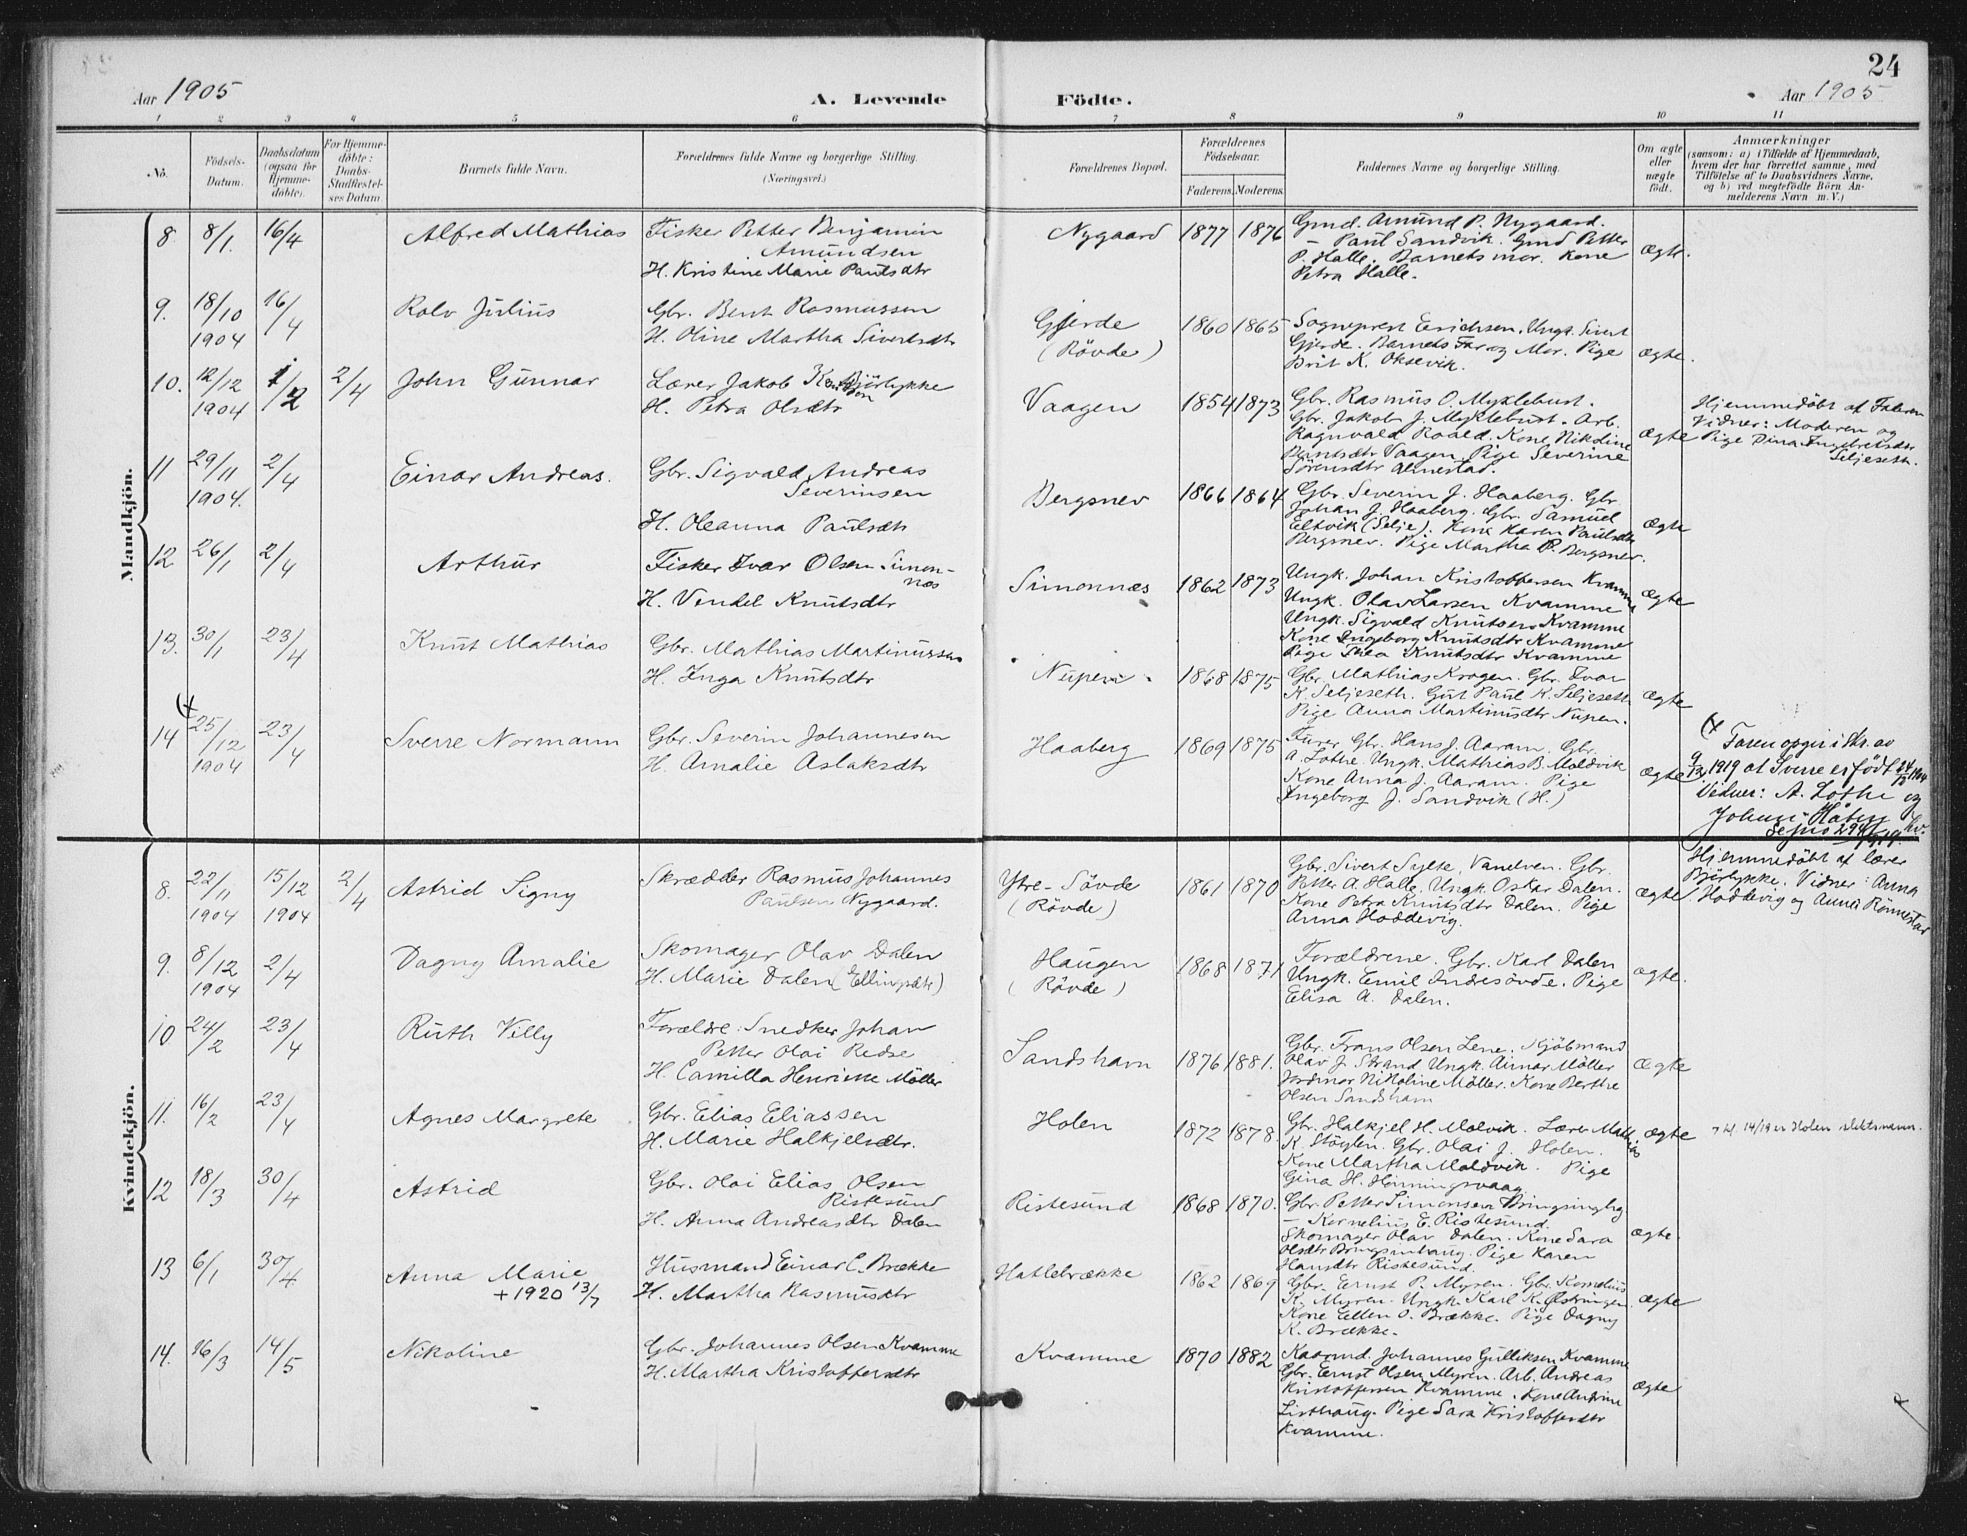 24
Aar 1905
A. Levende
Födte.
Aar 1905
1 2 3 4 5 6 7 8 9 10 11
No.
Födsels-
Datum.
Daabsdatum
(ogsaa for
Hjemme-
döbte).
For Hjemme-
döbte:
Daabs-
Stadfæstel-
ses Datum
Barnets fulde Navn.
Forældrenes fulde Navne og borgerlige Stilling.
(Næringsvei.)
Forældrenes Bopæl.
Forældrenes
Födselsaar.
Faderens. Moderens.
Faddernes Navne og borgerlige Stilling.
Om ægte
eller
uægte
födt.
Anmærkninger
(saasom: a) i Tilfælde af Hjemmedaab,
hvem der har forrettet samme, med
Tilföielse af to Daabsvidners Navne,
og b) ved uægtefödte Börn An-
melderens Navn m. V.)
Mandkjön.
8 8/1. 16/4 Alfred Mathias
Fisker Petter Benjamin
Amundsen
H. Kristine Marie Paulsdtr
Nygaard 1877 1876
Gmd. Amund P. Nygaard.
— Paul Sandvik. Gmd Petter
P. Halle. Barnets mor. Kone
Petra Halle.
ægte.
9. 18/10 1904 16/4 Rolv Julius
Gbr. Bent Rasmussen
H. Oline Martha Sivertsdtr
Gjerde
(Rövde)
1860 1865
Sogneprest Erichsen. Ungk. Sivert
Gjerde. Barnets Far og Mor. Pige
Brit K. Oksevik.
ægte.
10. 12/12 1904 1/2 2/4 John Gunnar
Lærer Jakob Bjørlykke
H. Petra Olsdtr
Vaagen 1854 1873
Gbr. Rasmus O. Myklebust.
Gbr. Jakob J. Myklebust. Arb.
Ragnvald Roald. Kone Nikoline
Vaagen Pige Severine
Sörensdtr Almestad.
ægte
Hjemmedöbt af Faderen
Vidner: Moderen og
Pige Dina Ingebretsdtr
Seljeseth.
11 29/11 1904. 2/4 Einar Andreas.
Gbr. Sigvald Andreas
Severinsen
H. Oleanna Paulsdtr
Bergsnev 1866 1864
Gbr. Severin J. Haaberg. Gbr
Johan J. Haaberg. Gbr. Samuel
Eltvik (Selje). Kone Karen Paulsdtr
Bergsnev. Pige Martha P. Bergsnev.
ægte
12 26/1 2/4 Arthur
Fisker Ivar Olsen Simon-
næs
H. Vendel Knutsdtr
Simonnæs 1862 1873
Ungk. Johan Kristoffersen Kvamme
Ungk. Olav Larsen Kvamme
Ungk. Sigvald Knutsen Kvamme
Kone Ingeborg Knutsdtr Kvamme
Pige Thea Knutsdtr Kvamme
ægte
13. 30/1 23/4 Knut Mathias
Gbr. Mathias Martinussen
H. Inga Knutsdtr
Nupen 1868 1875
Gbr. Mathias Krogen. Gbr. Ivar
K. Seljeseth. Gut Paul K. Seljeseth
Pige Anna Martinusdtr Nupen.
ægte
14 25/12 1904 23/4 Sverre Normann
Gbr. Severin Johannesen
H. Amalie Aslaksdtr
Haaberg 1869 1875
Furer Gbr. Hans J. Aaram. Gbr.
A. Lothe. Ungk. Mathias B. Moldvik
Kone Anna J. Aaram. Pige
Ingeborg J. Sandvik (H.)
ægte
Faren opgir i skr. av
9/12 1919 at Sverre er født 24/12 1904
Vidner: A. Lothe og
Johan
Kvindekjön.
8. 22/11 1904 15/12 1904 2/4 Astrid Signy
Skrædder Rasmus Johannes
Paulsen Nygaard.
Ytre-Sövde
(Rövde)
1861 1870
Gbr. Sivert Sylte, Vanelven. Gbr.
Petter A. Halle. Ungk. Oskar Dalen.
Kone Petra Knutsdtr Dalen. Pige
Anna Hoddevig.
ægte
Hjemmedöbt af lærer
Bjørlykke. Vidner: Anna
Hoddevig og Anna Rönnestad
9. 8/12 1904 2/4 Dagny Amalie
Skomager Olav Dalen
H. Marie Dalen (Ellingsdtr)
Haugen
(Rövde)
1868 1871
Forældrene. Gbr. Karl Dalen
Ungk. Emil Indresövde. Pige
Elisa A. Dalen.
ægte.
10 24/2 23/4 Ruth Villy
Forældre: Snedker Johan
Petter Olai Redse
H. Camilla Henrikke Möller
Sandshamn 1876 1881.
Gbr. Frans Olsen Lene. Kjöbmand
Olav J. Strand. Ungk. Einar Möller
Jordmor Nikoline Möller. Kone Berthe
Olsen Sandshamn
ægte
11. 16/2 23/4 Agnes Margrete
Gbr. Elias Eliassen
H. Marie Halkjelsdtr.
Holen 1872 1878.
Gbr. Halkjel H. Molvik. Lærer Mathias
K. Stöylen. Gbr. Olai J. Holen.
Kone Martha Moldvik. Pige
Gina H. Hönningsvaag
ægte
14/19 er Holen slektsnavn.
12 18/3 30/4 Astrid
Gbr. Olai Elias Olsen
Ristesund
H. Anna Andreasdtr Dalen
Ristesund 1868 1870.
Gbr. Petter Simonsen Bringsinghg
— Kornelius E. Ristesund.
Skomager Olav Dalen. Kone Sara
Olsdtr Bringsinhaug. Pige Karen
Hansdtr Ristesund.
ægte.
13 6/1 30/4 Anna Marie
+ 1920 13/7
Husmand Einar C. Brække
H. Martha Rasmusdtr
Hatlebrække 1862 1869
Gbr. Ernst P. Myren. Gbr. Kornelius
K. Myren. Ungk. Karl K. Østringen
Kone Ellen O. Brække. Pige Dagny
K. Brække.
ægte
14. 16/3 14/5 Nikoline
Gbr. Johannes Olsen Kvamme
H. Martha Kristoffersdtr
Kvamme 1870 1882
Kaarmd. Johannes Gulliksen Kvamme
Gbr. Ernst Olsen Myren. Arb. Andreas
Kristoffersen Kvamme. Kone Andrine
Listhaug. Pige Sara Kristoffersdtr
Kvamme.
ægte